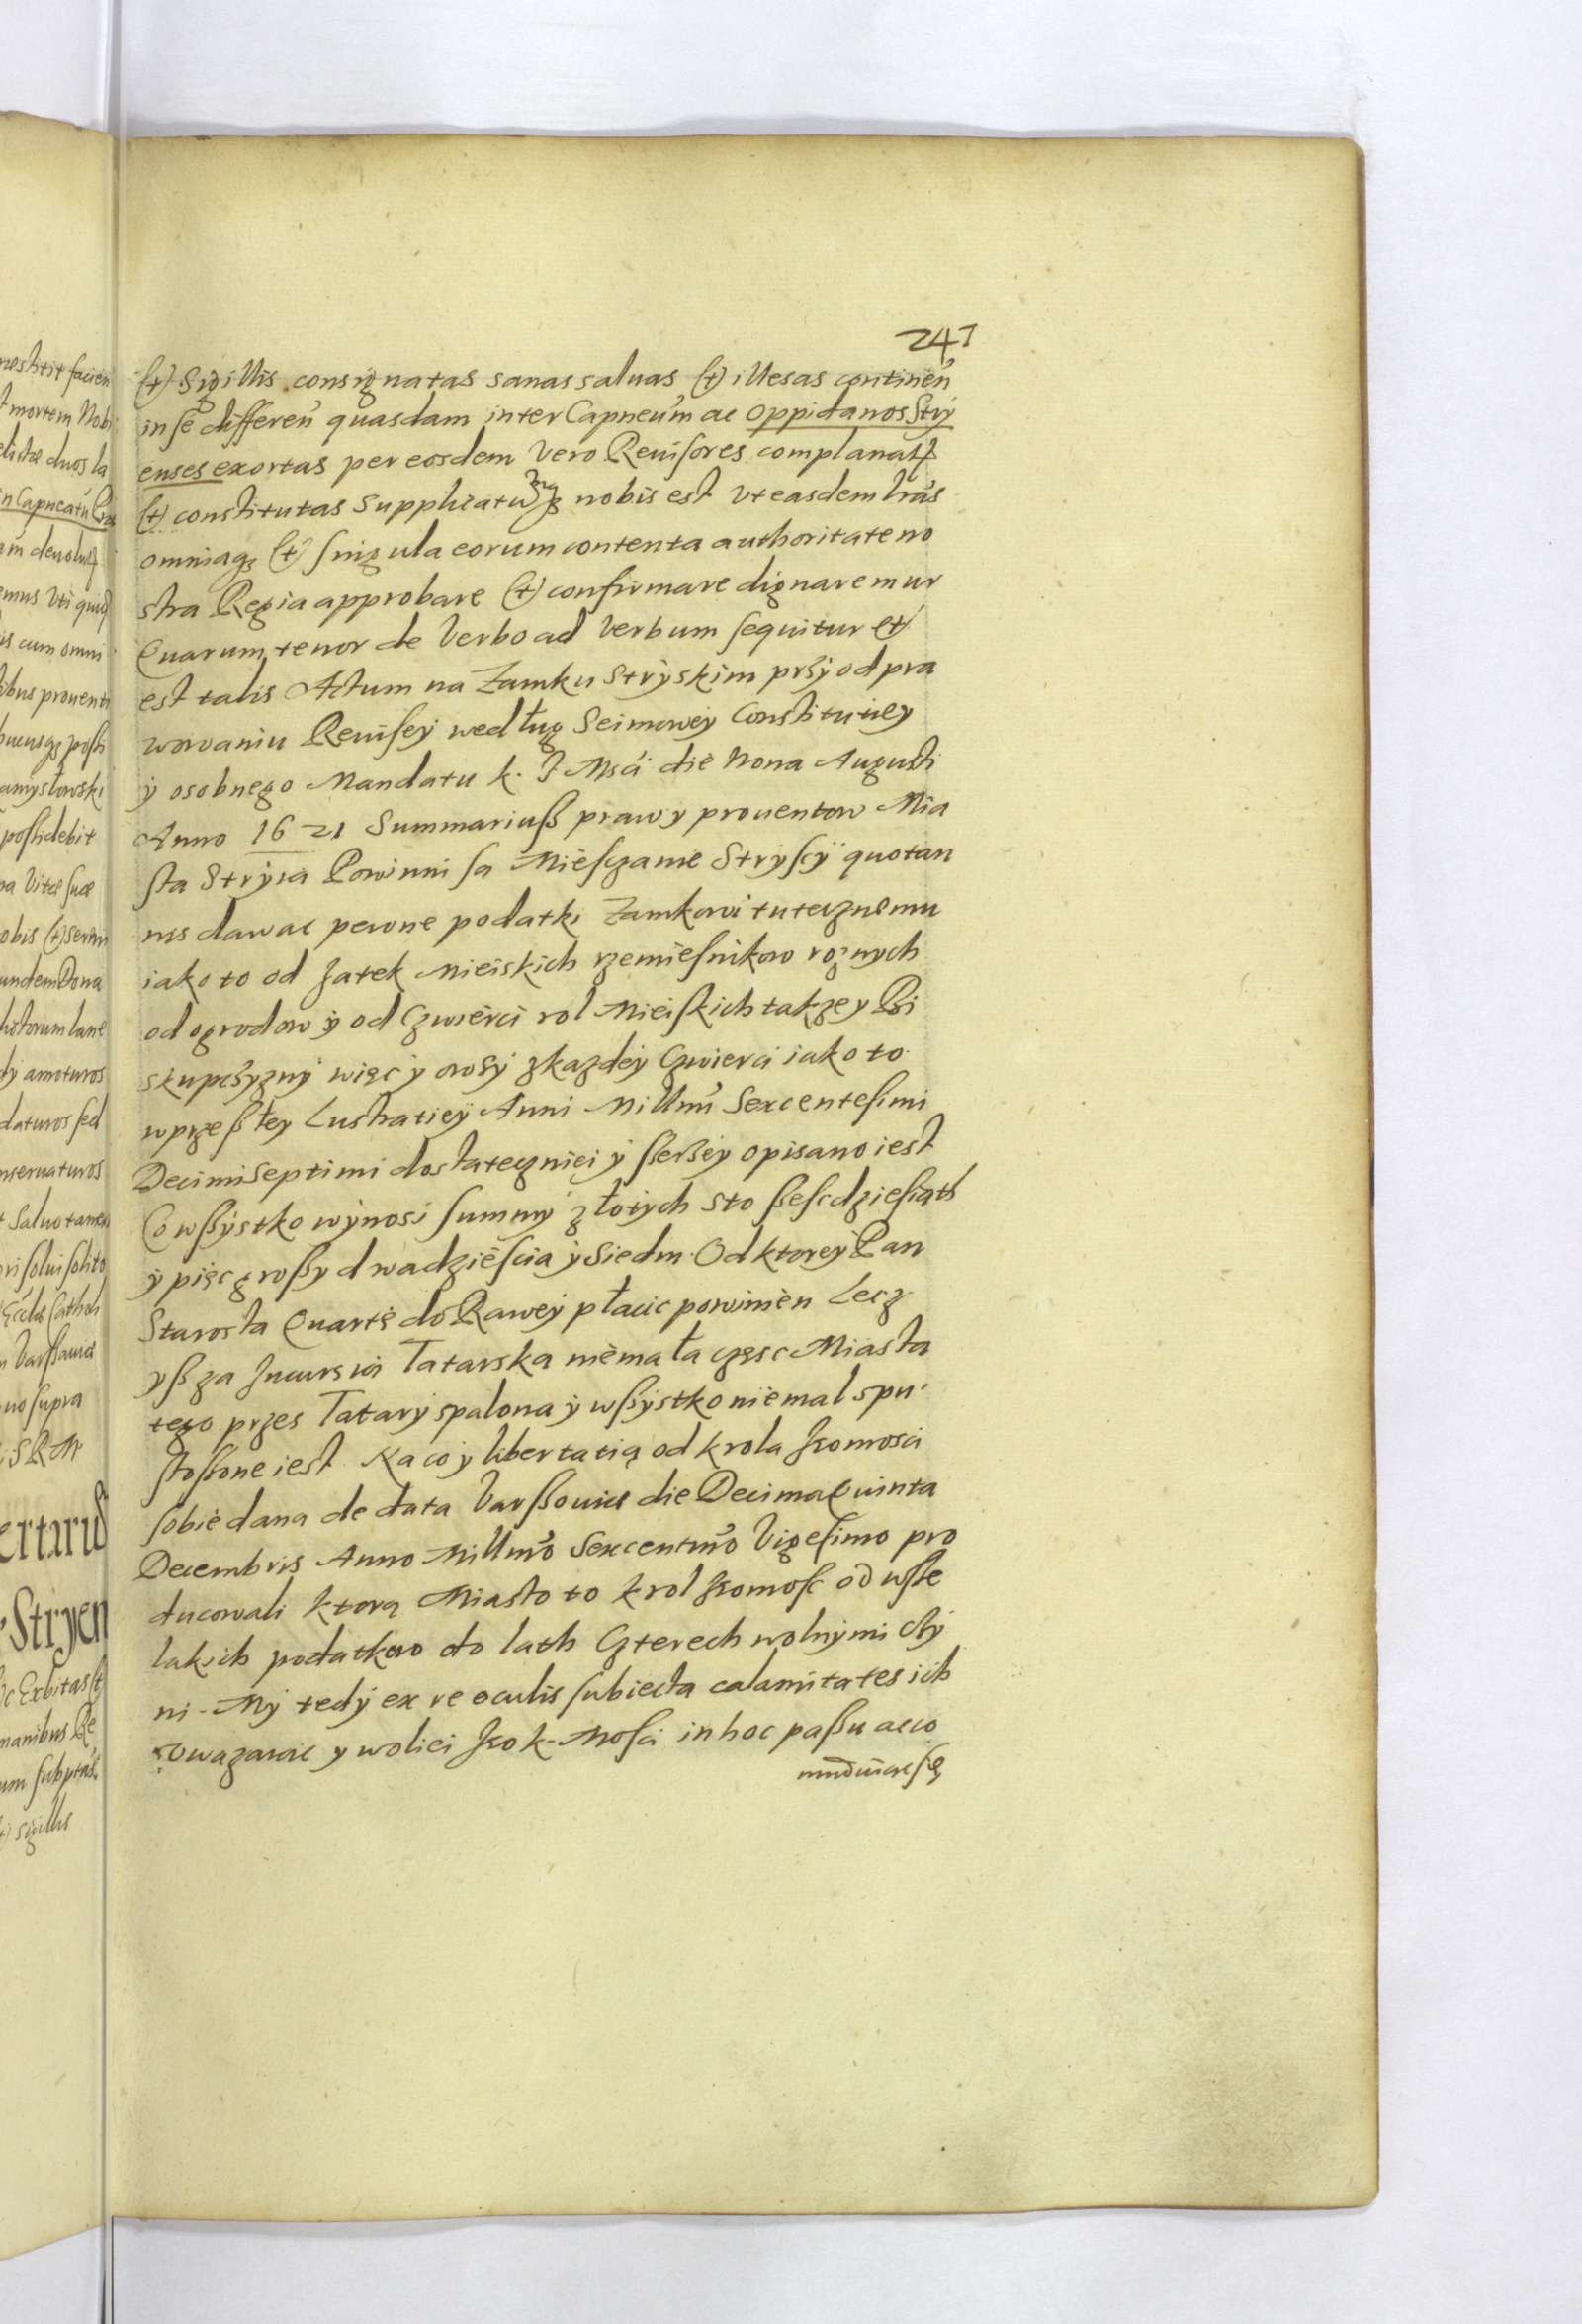 241
(et) Sigillis consignatas sanas saluas (et) illesas continen̄
in se differen̄ quasdam inter Capneūm ac oppidanos Stry
enses exortas per eosdem vero Reuisores complanat
(et) constitutas Supplicatumqȝ nobis est vt easdem lrās
omniaqȝ (et) singula eorum contenta authoritate no
stra Regia approbare (et) confirmare dignaremur
Quarum tenor de Verbo ad Verbum sequitur et
est talis Actum na Zamku Stryskim przÿ odpra
wowaniu Reuisey według Seimowey Constitutiey
ÿ osobnego Mandatu k. J Mscí die Nona Augusti
Anno 1621 Summariuß praw y prouentow Mia
sta Stryia Powinni sa Miesczanie Stryscÿ quotan
nis dawac pewne podatki Zamkowi tutecznemu
iako to od Jatek Mieiskich rzemiesnikow roznych
od ogrodow ÿ od Czwierci rol Mieiskich takze y Bi
skupczyznÿ więc ÿ owsÿ zkazdeÿ Czwierci iako to
w przeßłey Lustratieÿ Anni Millmī Sexcentesimi
Decimi Septimi dostateczniei ÿ ßerßeÿ opisano iest
Co wßÿstko wynosi summÿ złotÿch sto ßescdziesiąth
ÿ pięc großy dwadziescia ÿ siedm. Od ktoreÿ Pan
Starosta Quartę do Rawey płacic powinien Lecz
yß za Incursią Tatarska niemała częsc Miasta
tego przes Tatarÿ spalona ÿ wßÿstko niemal spu
stoßone iest Na co ÿ libertatią od krola Jeomosci
sobie dana de data Varßouiæ die Decima Quinta
Decembris Anno Millmō Sexcentmō Vigesimo pro
ducowali ktorą Miasto to krol Jeomosc od wße
lakich podatkow do lath Czterech wolnÿmi cżÿ
ni. Mÿ tedÿ ex re oculis subiecta calamitates ich
vwazaiąc y woliei Jeo k. Mosci in hoc paßu acco
mmoduiąc się
nostitit facien
t mortem Nobi
duos la
in Capneatu
emus Uti
is cum omni
ibus prouenti
amÿsłowski
poßidebit
na Vitæ suæ
obis (et) Seren
undem Dona
lictorum lane
dÿ amoturos
daturos sed
nseruaturos
t Saluo tamen
ori solui solito
Varßauiæ
no supra
is RM
Stryen
Exhibitas
manibus Re
um subptas
(et) sigillis